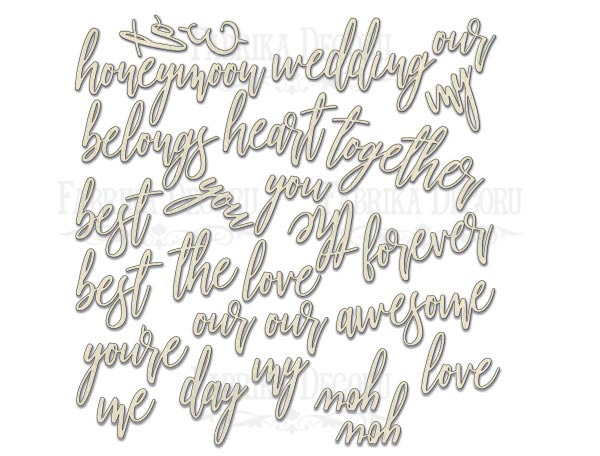 honeymoon wedding our
my
belongs heart together
best you you
the forever
best the love
our our awesome
you're my love
me day you
you
FABRIKA DECORU
FABRIKA DECORU
FABRIKA DECORU
FABRIKA DECORU